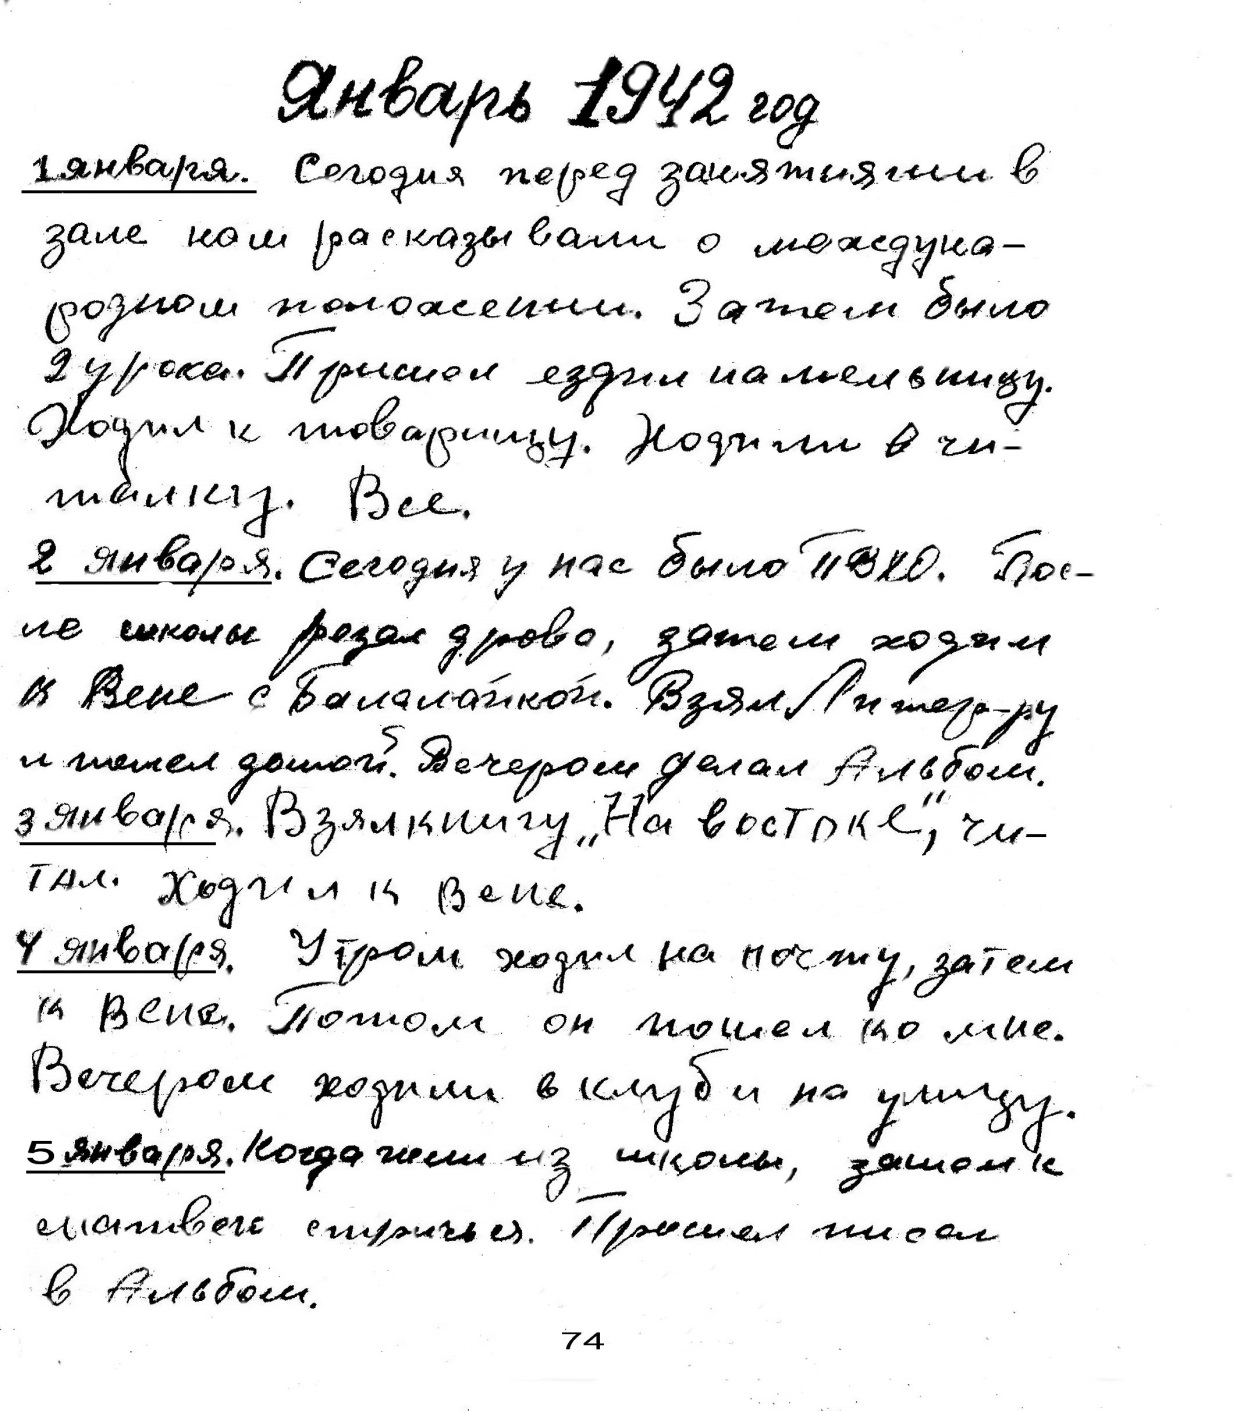 Январь 1942 год
1 января. Сегодня перед занятиями в
зале нам расказывали о междуна-
родном положении. Затем было
2 урока. Пришел ездил на мельницу.
Ходил к товарищу. Ходили в чи-
талку. Все.
2 января. Сегодня у нас было ПВХО. Пос-
ле школы резал дрова, затем ходил
к Вене с Балалайкой. Взял Литер-ру
и пошел домой. Вечером делал Альбом.
3 января. Взял книгу „На востоке", чи-
тал. Ходил к Вене.
4 января. Утром ходил на почту, затем
к Вене. Потом он пошел ко мне.
Вечером ходили в клуб и на улицу.
5 января. Когда шли из школы, зашел к
стричься. Пришел писал
в Альбом.
74